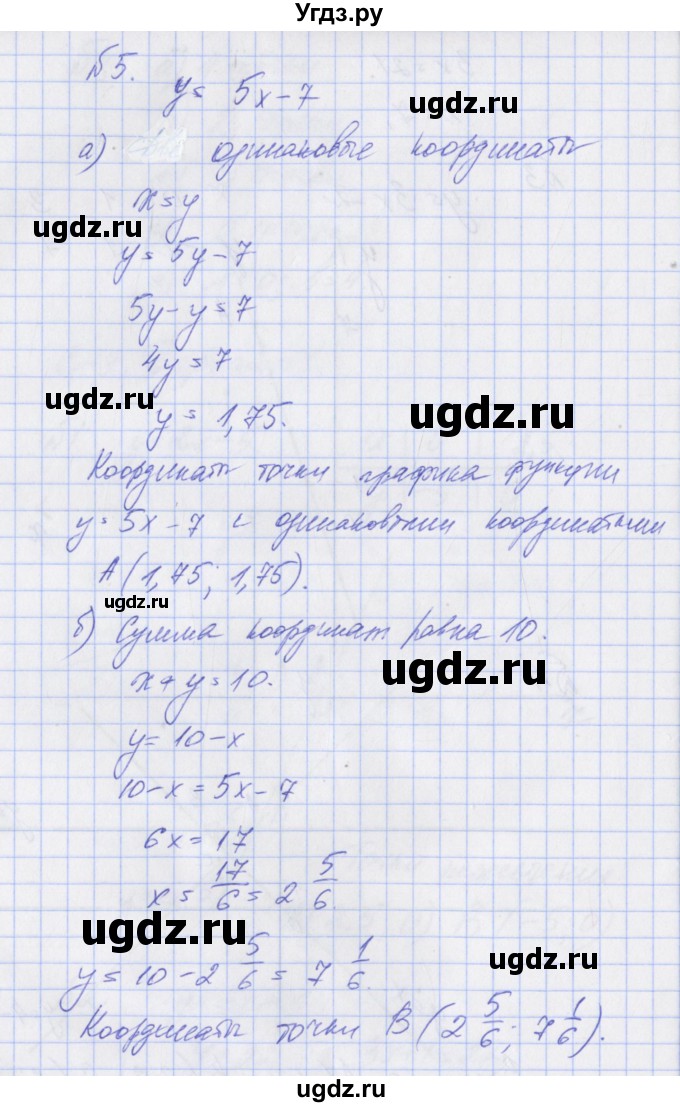 Угдз.ру
№5.
y = 5x - 7
ugdz.ru
а) одинаковые координаты
x = y
ugdz.ru
y = 5y - 7
5y - y = 7
4y = 7
ugdz.ru
y = 1,75.
ugdz.ru
Координаты точки графика функции
y = 5x - 7 с одинаковыми координатами
A (1,75; 1,75).
ugdz.ru
б) Сумма координат равна 10.
ugdz.ru
x + y = 10.
y = 10 - x
10 - x = 5x - 7
6x = 17
x = 17/6 = 2 5/6.
ugdz.ru
y = 10 - 2 5/6 = 7 1/6.
ugdz.ru
Координаты точки B (2 5/6; 7 1/6).
ugdz.ru